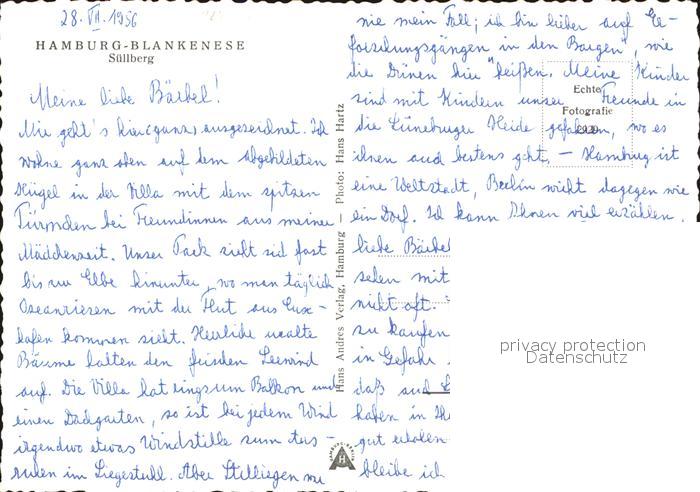 28. VII. 1956
HAMBURG-BLANKENESE
Süllberg
Meine liebe Bärbel!
Mir geht's hier (ganz) ausgezeichnet. Ich
wohne ganz oben auf dem abgebildeten
Hügel in der Villa mit dem spitzen
Türmchen bei Freundinnen aus meiner
Mädchenzeit. Unser Park zieht sich fast
bis zur Elbe hinunter, wo man täglich
Ozeanriesen mit der Flut aus Cux-
hafen kommen sieht. Herrliche uralte
Bäume halten den Seewind
auf. Die Villa hat ringsum Balkon und
einen Dachgarten, so ist bei jedem Wind
irgendwo etwas Windstille zum Aus-
ruhen im Liegestuhl. Aber Stilliegen
nie mein Fall; ich bin lieber auf Ge-
in den "Bargen", wie
die Dünen hier heißen. Meine Kinder
sind mit Kindern unser Freunde in
die Lüneburger Heide gefahren, wo es
ihnen auch bestens geht. – Hamburg ist
eine Weltstadt, Berlin wirkt dagegen wie
ein Dorf. Ich kann Ihnen viel erzählen,
liebe Bärbel
sehen mit
nicht oft.
zu kaufen
in Gefahr
daß auch
haben in Ih
gut erholen
bleibe ich
Echte
Fotografie
Hans Andres Verlag, Hamburg — Photo: Hans Hartz
privacy protection
Datenschutz